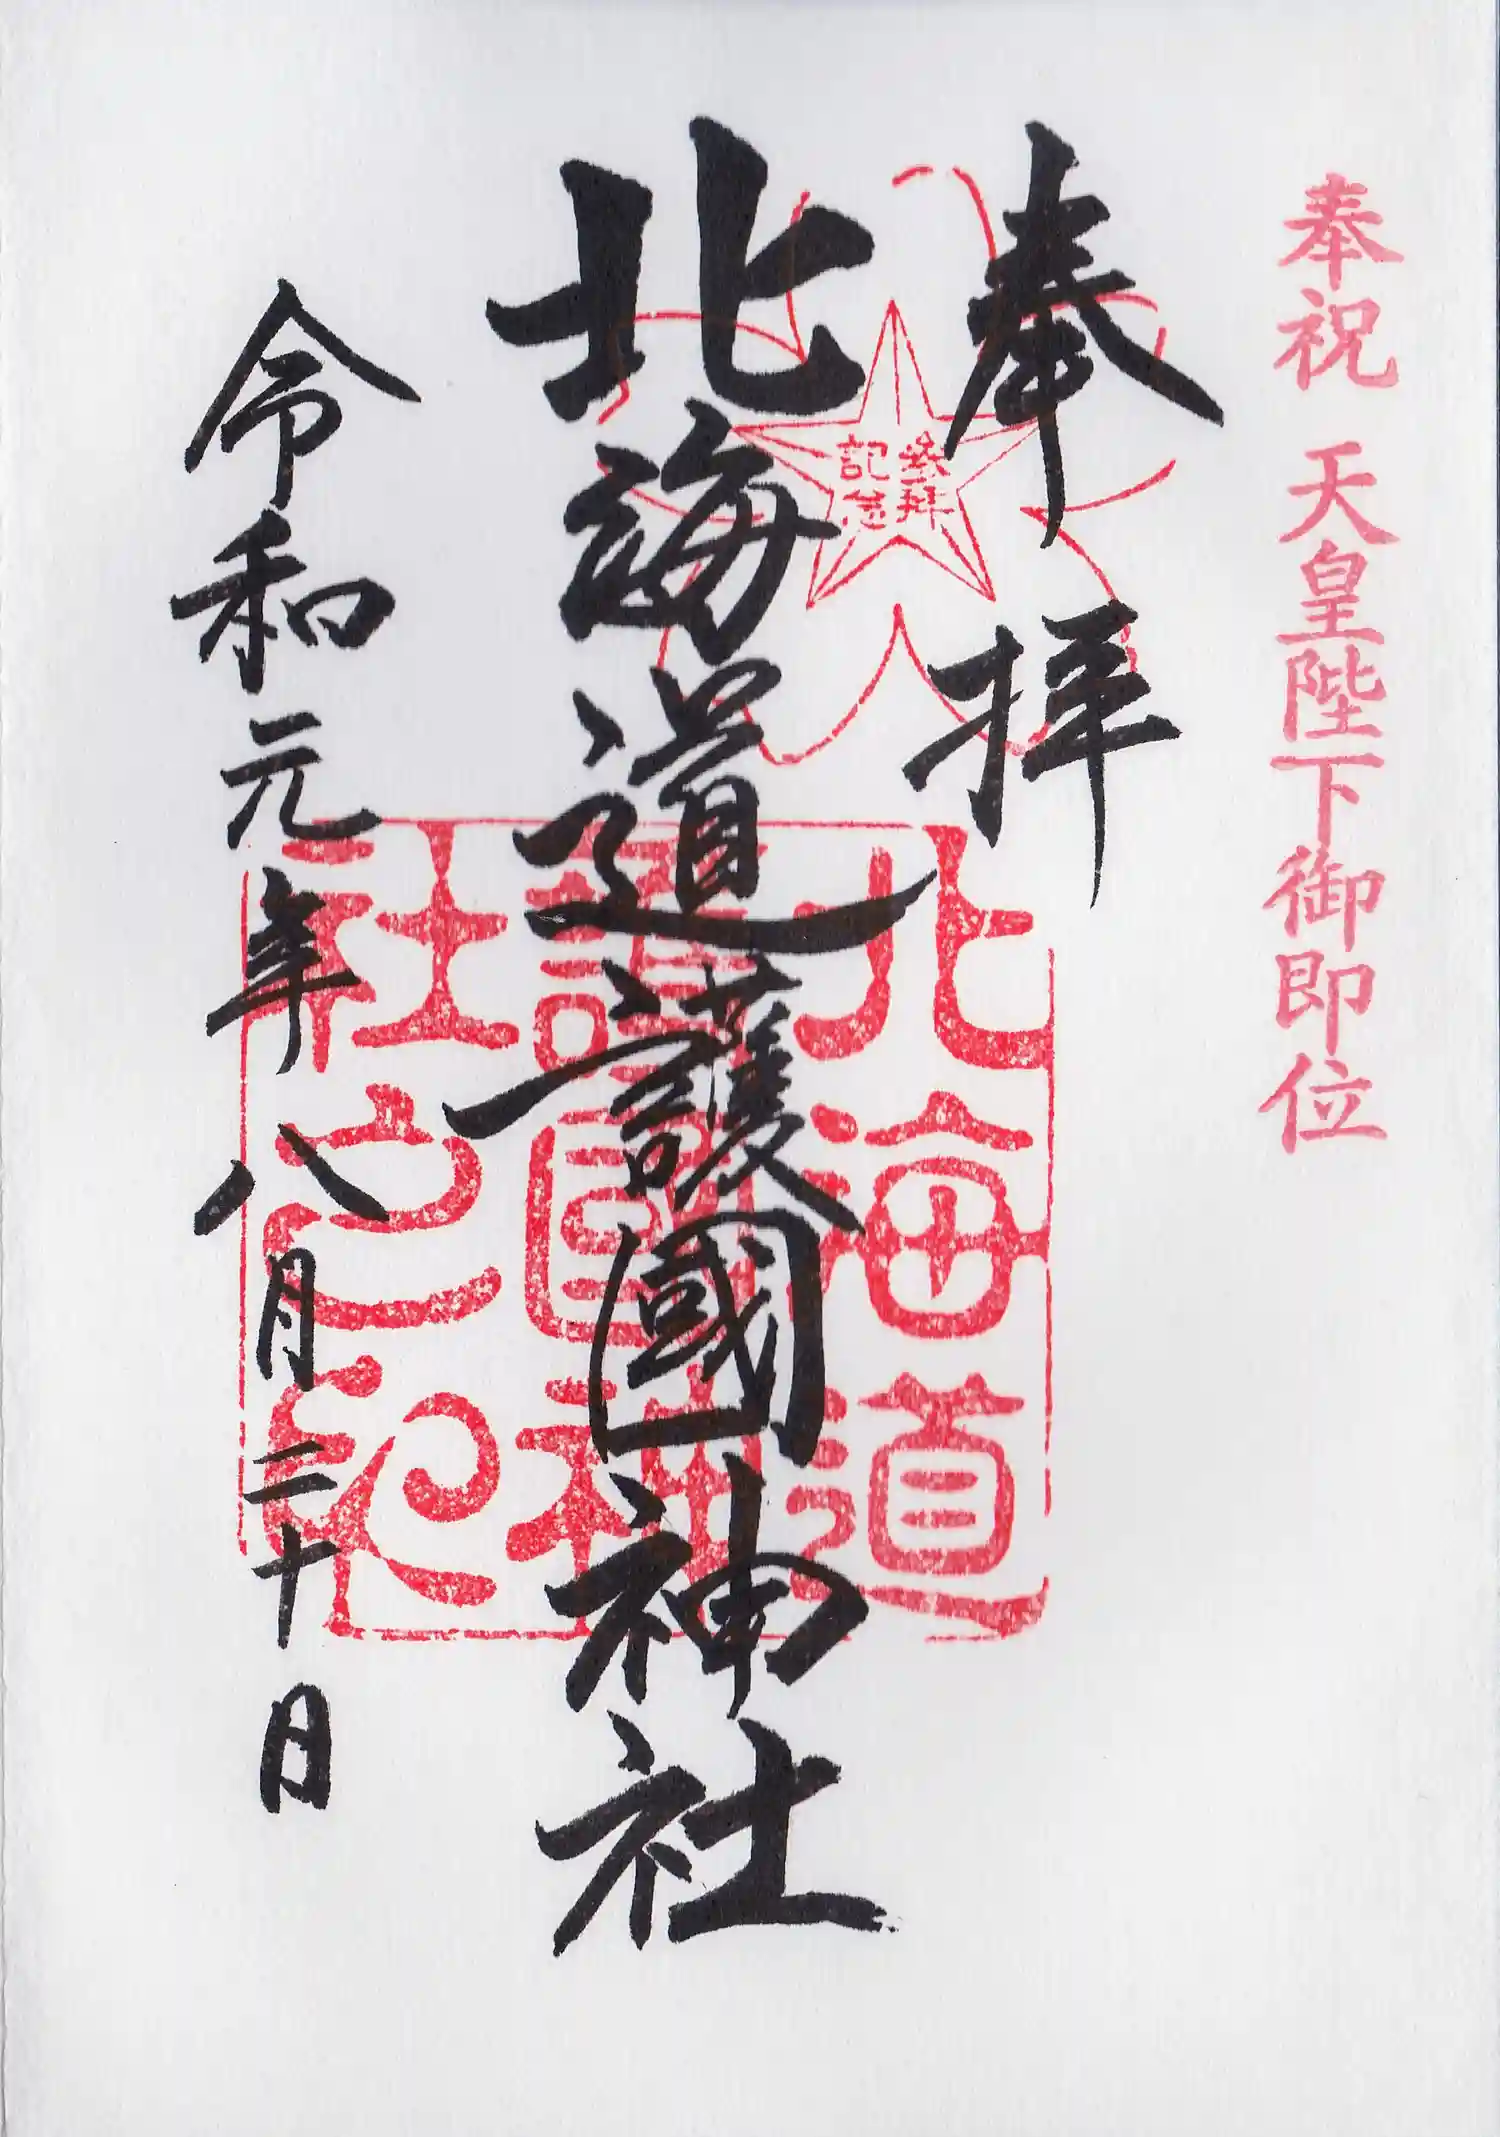 奉祝 天皇陛下御即位
奉拝
参拝
記念
北海道護國神社
北海道
護國神
社之印
令和元年八月二十日